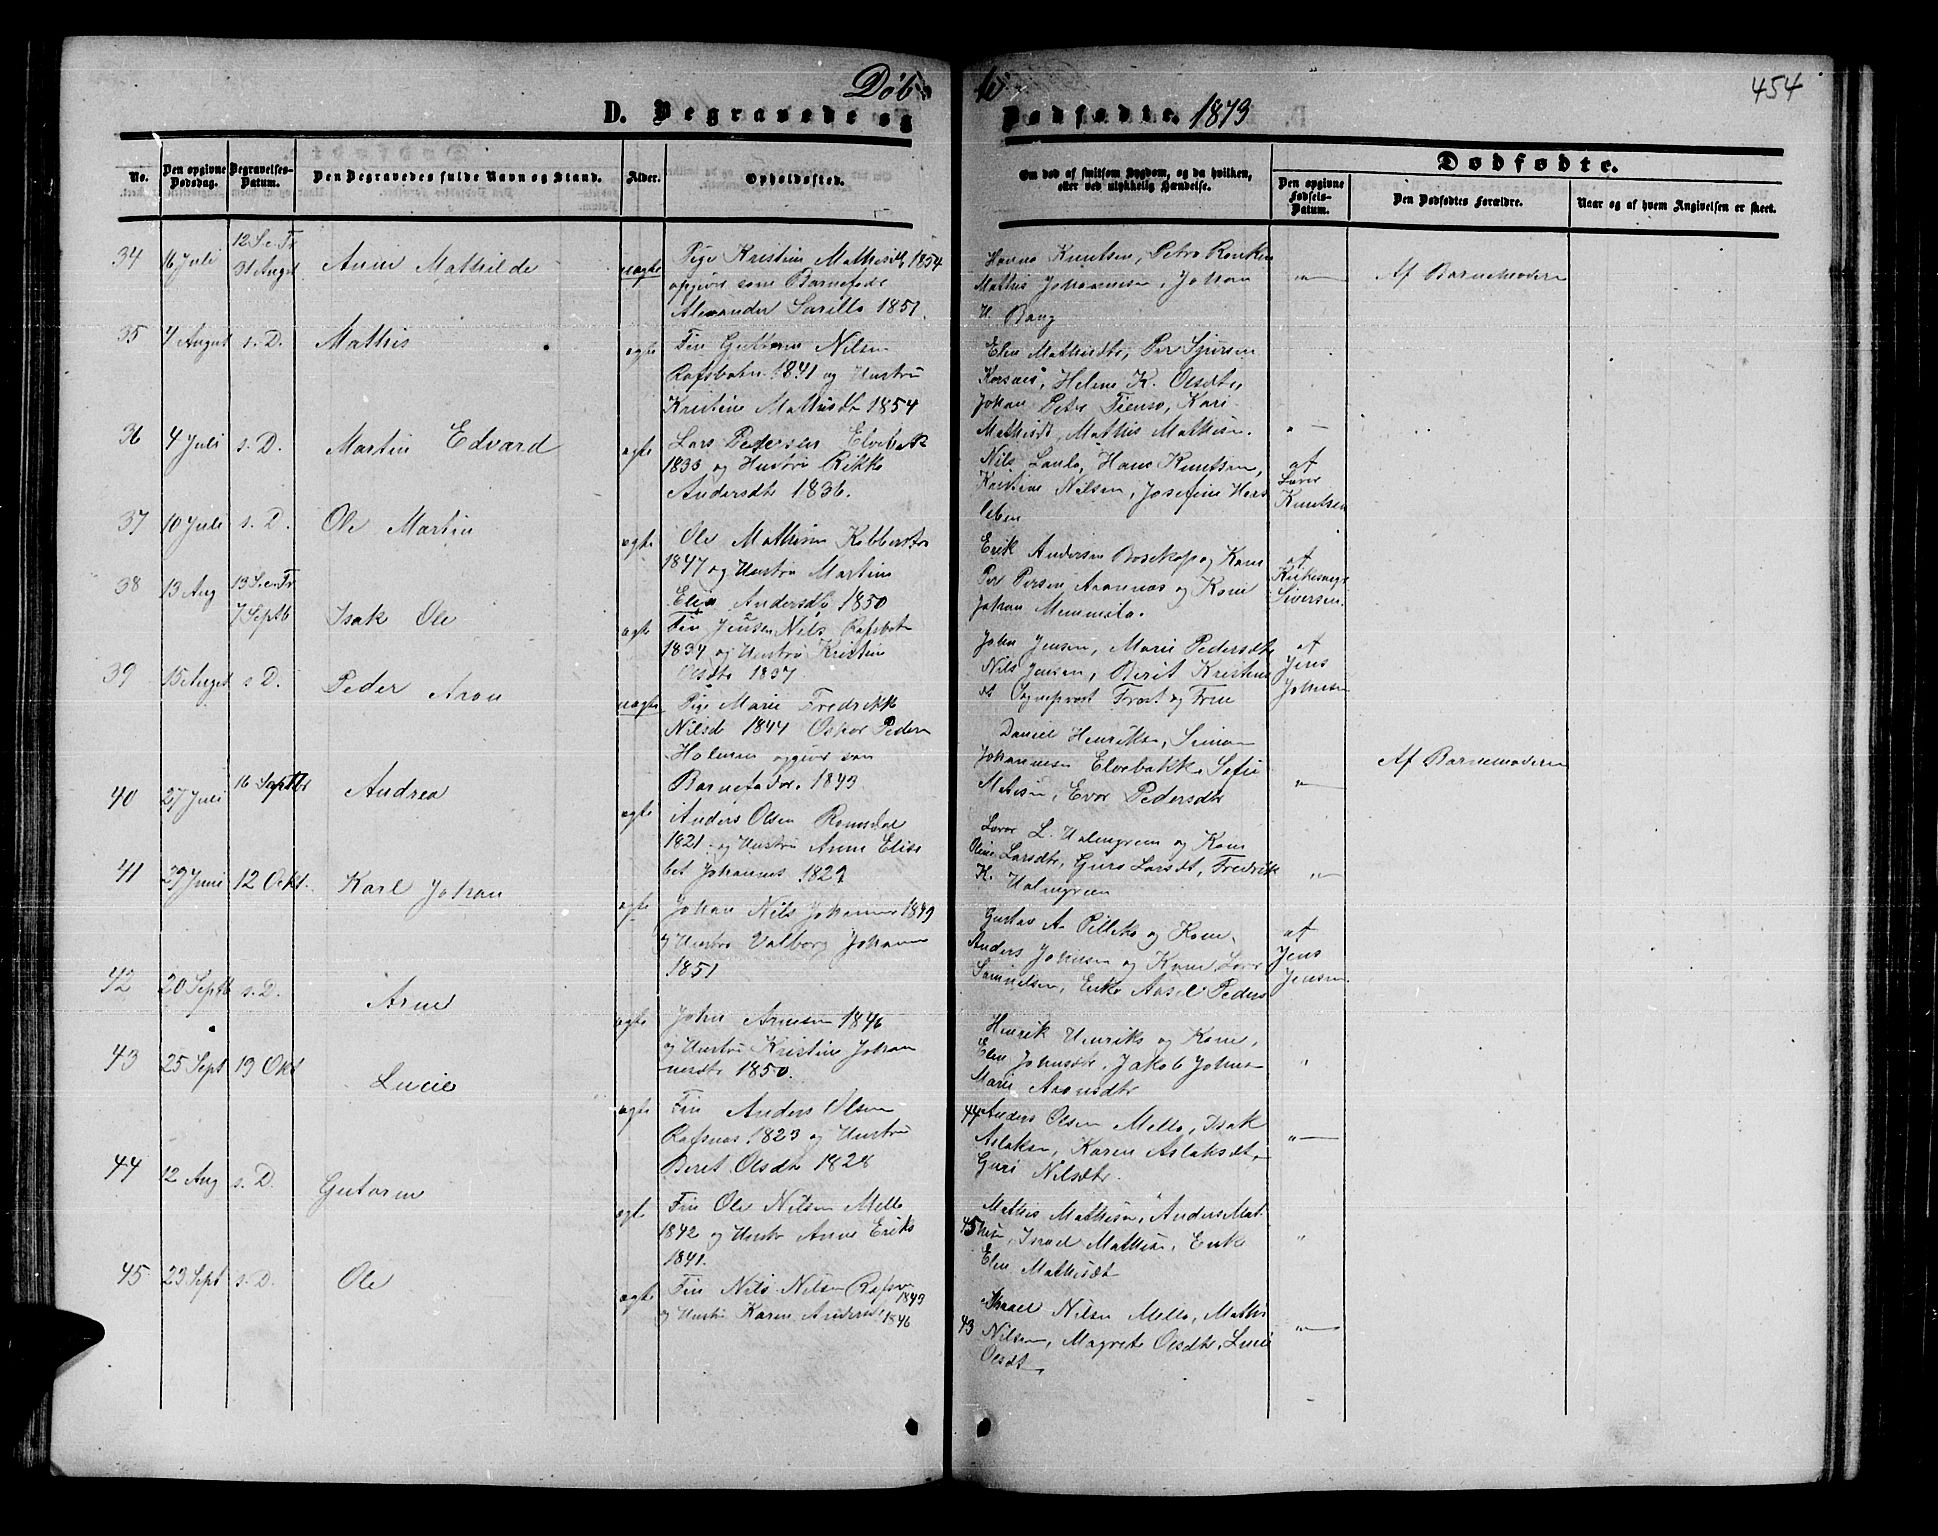 Døb te
454
D. Begravede og Dødfødte. 1879
No.
Den opgivne Dødsdag.
Begravelses-Datum.
Den Begravedes fulde Navn og Stand.
Alder.
Opholdssted.
Om død af smitsom Sygdom, og da hvilken, eller ved ulykkelig Hændelse.
Dødfødte.
Den opgivne Fødsels-Datum.
Den Dødfødtes Forældre.
Naar og af hvem Angivelsen er skeet.
34 16 Juli 12 S. e. Tr 31 August Anne Mathilde uægte
Pige Kristine Mathisdt 1854
opgivet som Barnefader
Alexander Sarilla 1851.
Hanna Knutsen, Petra
Mathis Johannesen, Johan
H. Bang
Af Barnemoderen
35 4 August s. D. Mathis ægte
Fin Guttorm Nilsen
Rafsbotn 1841 og Hustru
Kristine Mathisdt 1854
Elen Mathisdtr, Per
Korsnes, Helene K. Olsdtr,
Johan Peter Kari
Mathisdt, Mathis Mathisen.
36 4 Juli s. D. Martin Edvard ægte
Lars Pedersen Elvebakk
1833 og Hustru Rikke
Andersdtr 1836.
Nils Hans Knutsen,
Kristine Nilsen, Josefine Hers
leben
af
Knutsen
37 10 Juli s. D. Ole Martin ægte
Ole Mathisen
1847 og Hustru Martine
Elen Andersdtr 1850
Erik Andersen Bosekop og Kone
Per Persen Aronnæs og Kone
Johan
af
Siversen.
38 13 Aug 13 S. e. Tr 7 Septb Isak Ole ægte
Fin Jensen Nils Rafsbotn
1834 og Hustru Kristin
Olsdtr 1837.
John Jensen, Marie Pedersdtr
Nils Jensen, Berit Kristine
af
Jens
Johnsen
39 15 August s. D. Peder Aron uægte
Pige Marie Fredrikke
Nilsd 1844 Oskar Peder
Holman opgivet som
Barnefader. 1849
Sogneprest Frost og Frue
Daniel Henriksen, Simon
Johannesen Elvebakke Sofie
Mathisen, Evor Pedersdtr
Af Barnemoderen
40 27 Juli 16 Septbr Andrea ægte
Anders Olsen Romsdal
1821 og Hustru Anne Elisa
bet Johannes 1829
L. Halmgren og Kone
Oline Larsdtr, Guro Larsdt, Fredrik
K. Halmgren
41 29 Juni 12 Okt. Karl Johan ægte
Johan Nils Johannes 1849
og Hustru Valborg Johanne
1851
Gustav A. Pilliko og Kone.
Anders Johnsen og Kone
Samuelsen, Enke Aasel Peders
af
Jens
Jensen
42 20 Septb s. D. Arne ægte
John Arnesen 1846
og Hustru Kristine Johan
nesdtr 1850.
Henrik Henriks og Kone,
Elen Johnsdtr, Jakob Johnsen
Marie Aronsdtr
43 25 Sept 19 Okt Lucie ægte
Fin Anders Olsen
Rafsnas 1823 og Hustru
Beret Olsdtr 1828
44 Anders Olsen Mella, Isak
Aslaksen, Karen Aslaksdt,
Guri Nilsdtr.
44 12 Aug s. D. Gutorm ægte
Fin Ole Nilsen Mella
1842 og Hustr Anne Eriks
1841.
Mathis Mathisen, Anders Mat
45 hisn, Israel Mathisn, Enke
Elen Mathisdt
45 23 Sept s. D. Ole ægte
Fin Nils Nilsen 1849
og Hustru Karen Andersdtr 1846
Israel Nilsen Mella, Mathis
43 Nilsen, Magrete Olsdtr, Lucie
Olsdt,